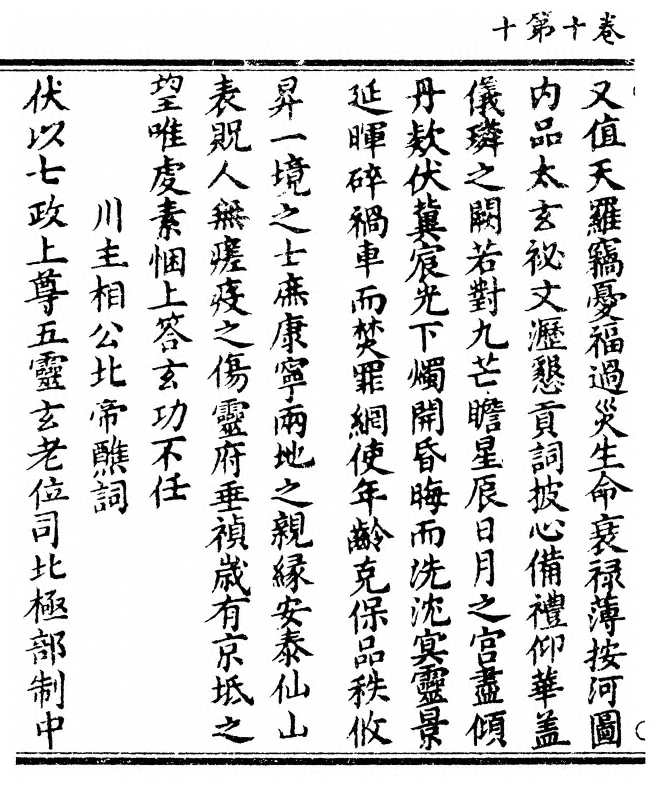 卷十第十
又值天羅竊憂福過災生命衰禄薄按河圖
内品太玄祕文瀝懇貢詞披心備禮仰華盖
儀璘之闕若對九芒瞻星辰日月之宫盡傾
丹欵伏冀宸光下燭開昏晦而洗沈冥靈景
延暉碎禍車而焚罪網使年齡克保品秩攸
昇一境之士庶康寧兩地之親緣安泰仙山
表貺人無瘥疫之傷靈府垂禎歲有京坻之
望唯虔素悃上答玄功不任
川主相公北帝醮詞
伏以七政上尊五靈玄老位司北極部制中